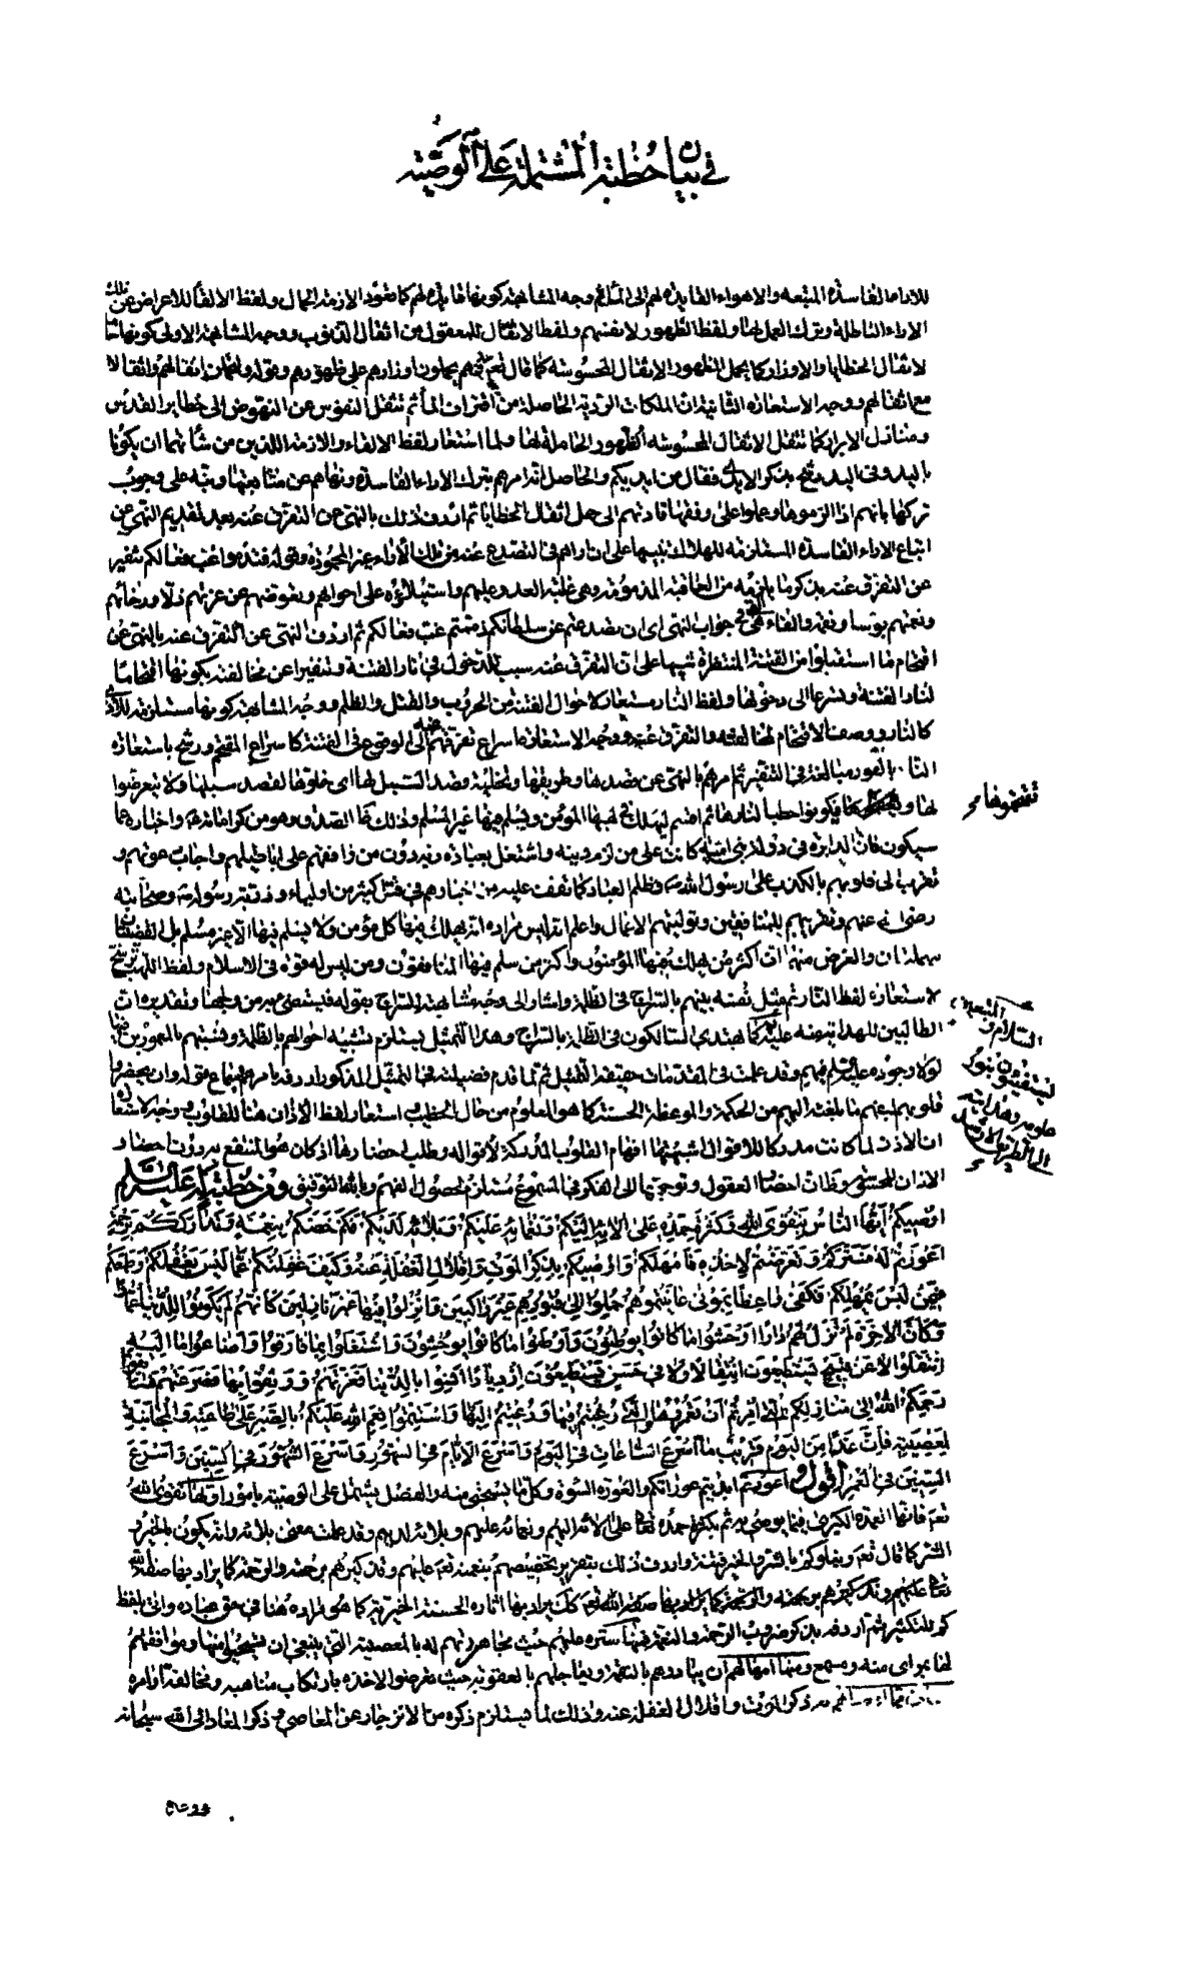 في بيان خطبته المشتملة على الوصية
للاراء الفاسدة المتبعه والاهواء القايدة لهم الى المآثم وجه المشابهة كونها قايدة لهم كما تقود الازمة الجمال ولفظ الالقاء للاعراض عن تلك
الاراء الباطلة وترك العمل بها ولفظ الظهور لانفسهم ولفظ الاثقال للمعقول من اثقال الذنوب ووجه المشابهة الاولى كونها
لاثقال الخطايا والاوزار كما يحمل الظهور الاثقال المحسوسة كما قال تعالى يحملون اوزارهم على ظهورهم وقوله وليحملن اثقالهم واثقالا
مع اثقالهم ووجه الاستعارة الثانية ان الملكات الردية الحاصلة من اقتراف المآثم تثقل النفوس عن النهوض الى حظاير القدس
ومنازل الابرار كما تثقل الاثقال المحسوسه الظهور الحاملة لها ولما استعار لفظ الالقاء والازمة اللذين من شأنهما ان يكونا
باليد وفى اليد رشح بذكر الايدى فقال من ايديكم والحاصل انه امرهم بترك الاراء الفاسدة ونهاهم عن متابعتها ونبه على وجوب
تركها بانهم اذا الزموها وعملوا على وفقها قادتهم الى حمل اثقال الخطايا ثم اردف ذلك بالنهى عن التفرق عنه بعد تقديم النهى عن
اتباع الاراء الفاسدة المستلزمة للهلاك تنبيها على ان اراهم فى التصدع عنه من تلك الاراء غير المحمودة وقوله فتذموا غب فعالكم تنفير
عن التفرق عنه بذكر ما يلزمه من العاقبة المذمومة وهى غلبة العدو عليهم واستيلاؤه على احوالهم
ونعمتهم بؤسا ونقمة والفاء فى جواب النهى اى ان تصدعتم عن سلطانكم ذممتم غب فعالكم ثم اردف النهى عن التفرق عنه بالنهى عن
اقتحام ما استقبلوا من الفتنة المنتظرة تنبيها على ان التفرق عنه سبب للدخول في نار الفتنة وتنفيرا عن مخالفته بكونها اقتحاما
لنار الفتنة وتسرعا الى دخولها ولفظ النار مستعار لاحوال الفتنة من الحروب والقتل والظلم ووجه المشابهة كونها مستلزمة للاذى
كالنار ووصف الاقتحام لمخالفته والتفرق عنه ووجه الاستعارة اسراع تفرقهم الى الوقوع فى الفتنة كاسراع المقتحم ورشح باستعارة
النار بالفور مبالغة فى التنفير ثم امرهم بالتنحى عن قصدها وطريقها وتخلية قصد السبيل لها اى خلوها لقصد سبيلها ولا تتعرضوا
تقتحموها
لها فيكونوا حطبا لنارها ثم اقسم ليهلك فى لهبها المؤمن ويسلم فيها غير المسلم وذلك كما الصدق وهو من كراماته واخباره عما
سيكون فان الدايرة فى دولة بنى امية كانت على من لزم دينه واشتغل بعبادة ربه دون من وافقهم على اباطيلهم واجاب دعوتهم و
تقرب الى قلوبهم بالكذب على رسول الله وظلم العباد كما تقف عليه من اخبارهم فى قتل كثير من اولياء وذرية رسوله وصحابته
رضى الله عنهم وتقريبهم للمنافقين وتوليتهم الاعمال واعلم انه ليس مراده انه يهلك فيها كل مؤمن ولا يسلم فيها الا غير مسلم بل القضيتان
مهملتان والغرض منهما ان اكثر من يهلك فيها المؤمنون واكثر من سلم فيها المنافقون ومن ليس له قوة فى الاسلام ولفظ اللهب ترشيح
لاستعارة لفظ النار ثم مثل نفسه بينهم بالسراج فى الظلمة واشار الى وجه مشابهته السراج بقوله يستضىء به من ولجها وتقديره ان
الطالبين للهداية منه عليه السلام والمتبعين له يستضيئون بنور علومه وهدايته الى الطريق الارشد
كما يهتدى السالكون فى الظلمة بالسراج وهذا التمثيل يستلزم تشبيه احوالهم بالظلمة ونسبتهم بالمغمورين فيها
لولا وجوده عليه السلم فيهم وقد علمت فى المقدمات حقيقة التمثيل ثم لما قدم فضيلته فى التمثيل المذكور اردفه بامرهم بسماع قوله وان يحضروا
قلوبهم لفهم ما يلقيه اليهم من الحكمة والموعظة الحسنة كما هو المعلوم من حال الخطيب واستعار لفظ الاذان هنا للقلوب ووجه الاستعارة
ان الاذن لما كانت مدركا للاقوال اشبهتها افهام القلوب المدركة لاقواله وطلب احضارها اذ كان هو المنتفع به دون احضار
الاذان المحسوسة فان احضار العقول وتوجهها الى الفكر فى المسموع مستلزم لحصول الفهم وبالله التوفيق ومن خطبة له عليه السلم
اوصيكم ايها الناس بتقوى الله وكثرة حمده على الائه اليكم ونعمائه عليكم وبلائه لديكم فكم خصكم بنعمة وتدارككم برحمة
اعورتم له فستركم وتعرضتم لاخذه فامهلكم واوصيكم بذكر الموت واقلال الغفلة عنه وكيف غفلتكم عما ليس يغفلكم وطمعكم
فيمن ليس يمهلكم فكفى واعظا بموتى عاينتموهم حملوا الى قبورهم غير راكبين وانزلوا فيها غير نازلين كانهم لم يكونوا للدنيا عمارا
وكان الاخرة لم تزل لهم دارا اوحشوا ما كانوا يوطنون واوطنوا ما كانوا يوحشون واشتغلوا بما فارقوا واضاعوا ما اليه
انتقلوا لا عن قبيح يستطيعون انتقالا ولا فى حسن يستطيعون ازديادا انسوا بالدنيا فغرتهم ووثقوا بها فصرعتهم فسابقوا
رحمكم الله الى منازلكم التى امرتم ان تعمروها والتى رغبتم فيها ودعيتم اليها واستتموا نعم الله عليكم بالصبر على طاعته والمجانبة
لمعصيته فان غدا من اليوم قريب ما اسرع الساعات فى اليوم واسرع الايام فى الشهور واسرع الشهور فى السنين واسرع
السنين فى العمر اقول اعورتم ابديتم عوراتكم والعورة السوءة وكل ما يستحيى منه والفصل يشتمل على الوصية بامور اولها تقوى الله
ثم بكثرة حمده تعالى على الائه اليهم ونعمائه عليهم وبلائه لديهم وقد علمت معنى بلائه وانه يكون بالخير و
الشر كما قال تعالى ونبلوكم بالشر والخير فتنة واردف ذلك بتقرير تخصيصهم بنعمة تعم عليهم وتذكيرهم برحمته والرحمة كما يراد بها صفة الله
تعالى كذلك يراد بها اثاره الحسنة الخيرية كما هو مراده هنا فى حق عباده واتى بلفظ
كم للتكثير ثم اردفه بذكر ضروب الرحمة والنعمة فمنها ستره عليهم حيث مجاهرتهم له بالمعصية التى ينبغى ان يستحيوا منها وموافقتهم
لها بمراى منه ومسمع ومنها امهاله لهم ان يتداركهم بالنقمة ويعاجلهم بالعقوبة حيث تعرضوا لاخذه بارتكاب مناهيه ومخالفة اوامره
ذكر الموت واقلال الغفلة عنه وذلك لما يستلزم ذكره من الانزجار عن المعاصى وذكر المعاد الى الله سبحانه